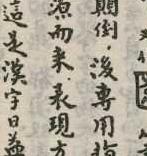 顛倒,後專用指
源而来.表現方
這是漢字日益